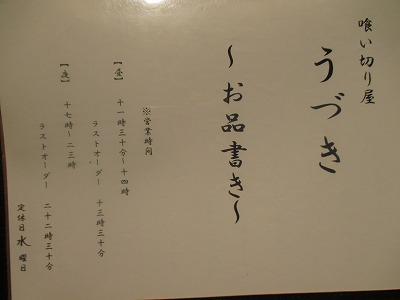 喰い切り屋
うづき
～お品書き～
※営業時間
【昼】 十一時三十分～十四時
ラストオーダー 十三時三十分
【夜】 十七時～二三時
ラストオーダー 二十二時三十分
定休日 水曜日